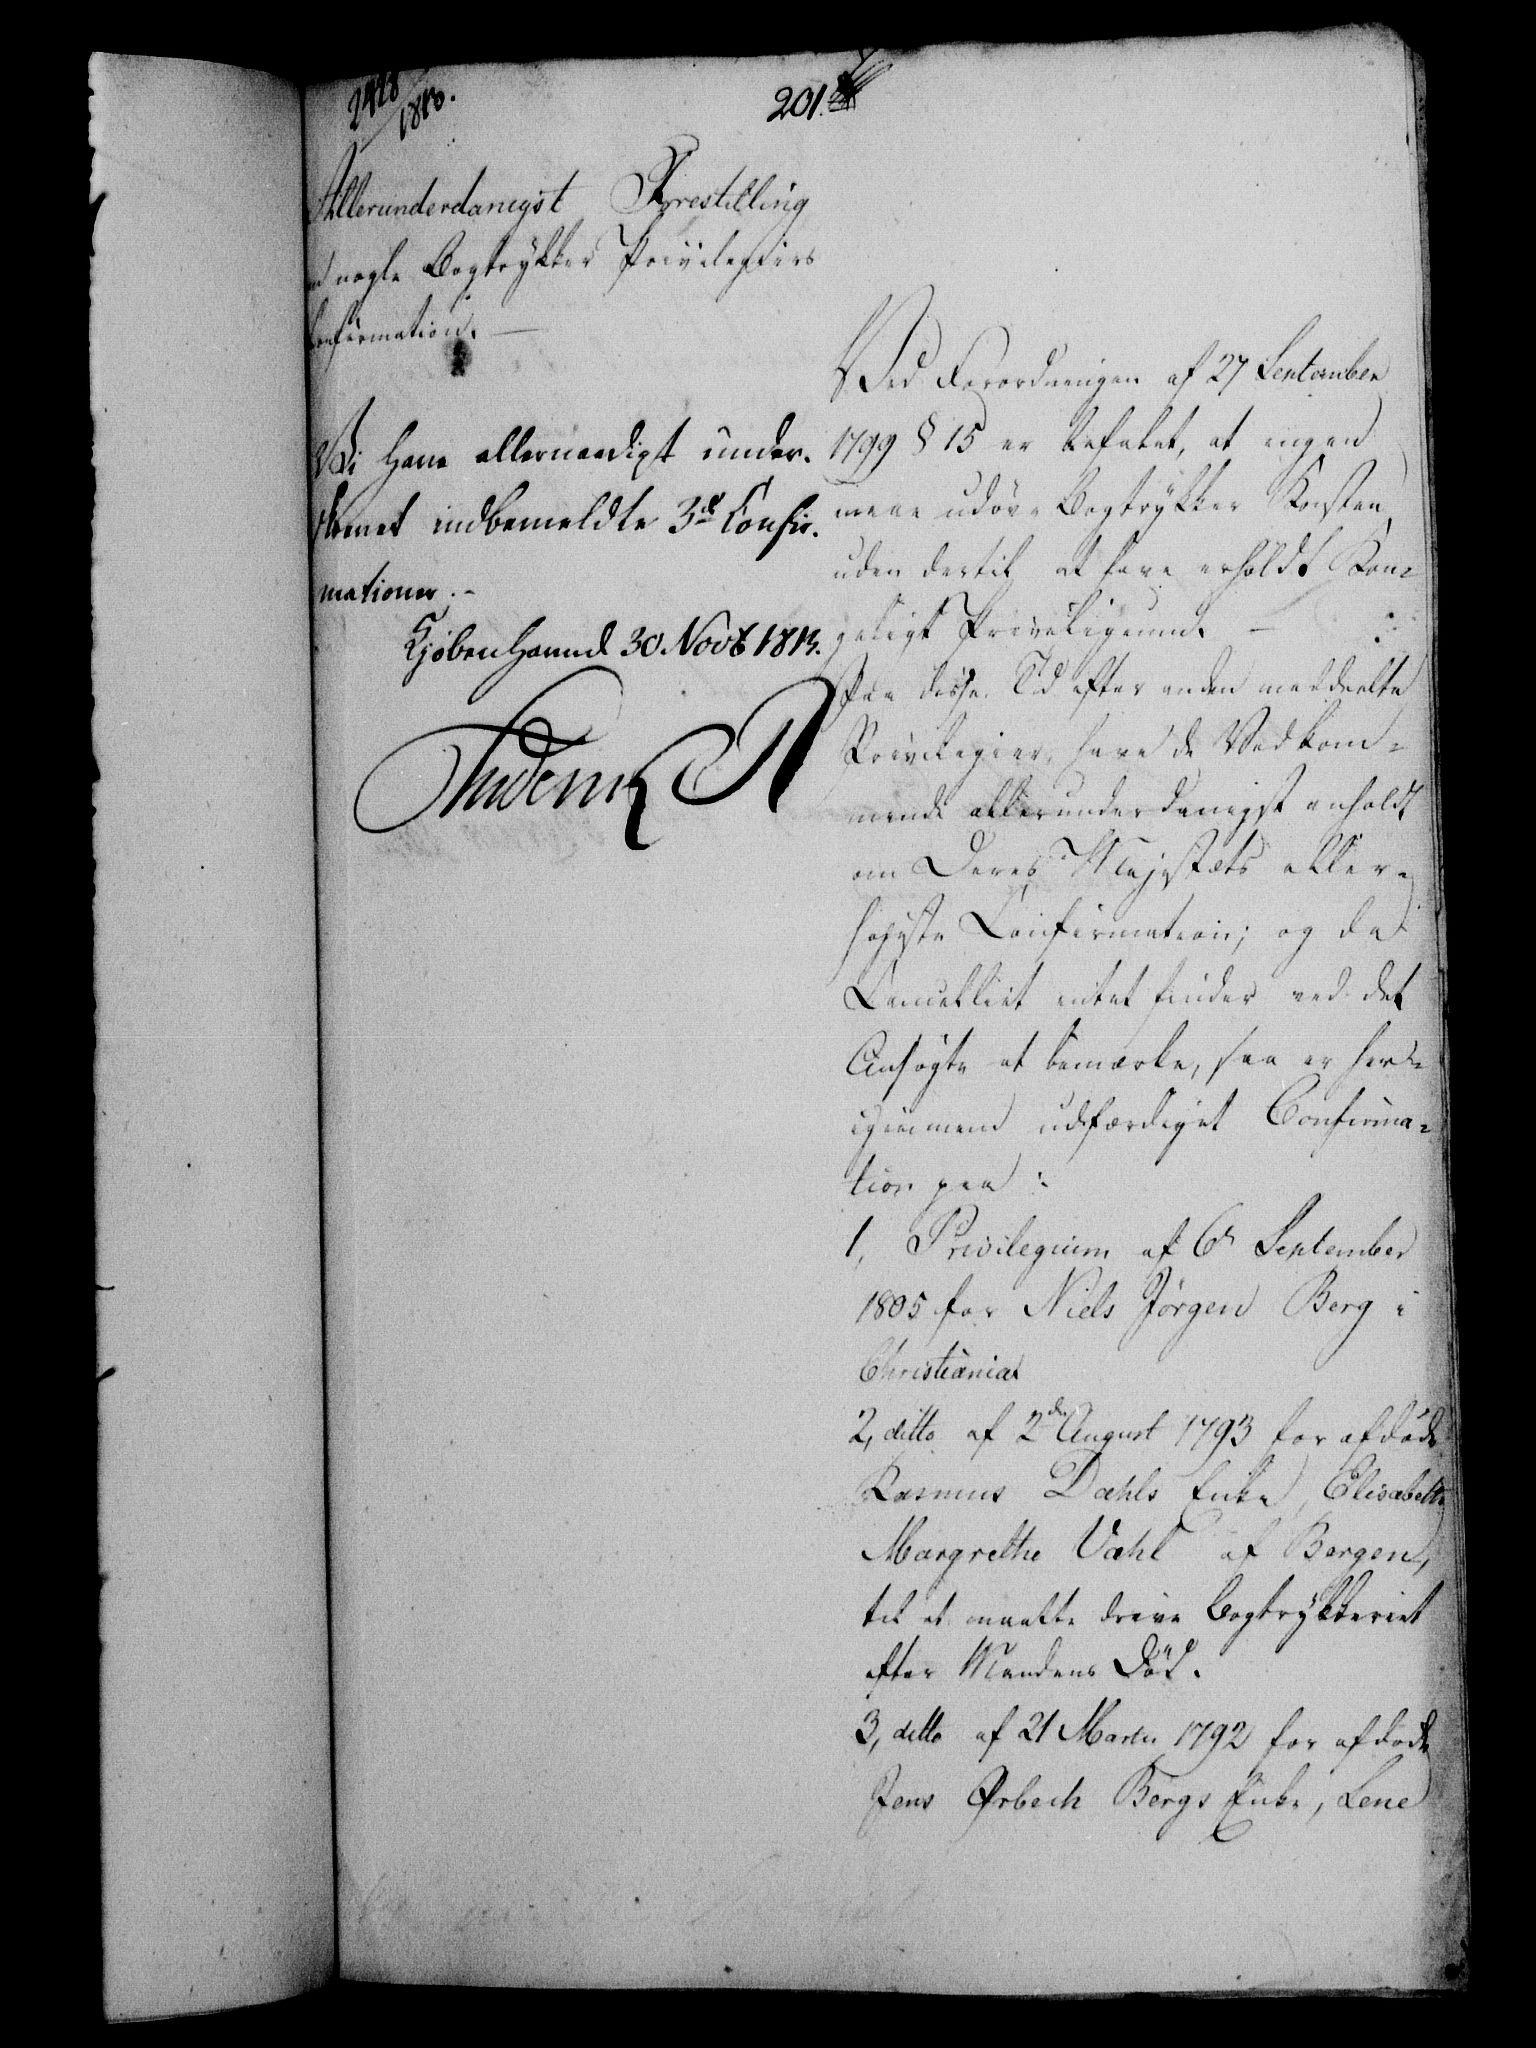 2418
1813.
201.
Allerunderdanigst Forestilling
nogle Bogtrykker Privilegiers
Confirmation. —
Vi have allernaadigst under-
skrevet indbemeldte 3de Confir-
mationer. -
Kjöbenhavnd 30. Novb 1813.
Friderich R
Ved Forordningen af 27 September
1799 § 15 er befalet, at ingen
maae udöve Bogtrykker Konsten,
uden dertil at have erholdt Kon-
geligt Privilegium. —
Paa disse Tid efter anden meddeelte
Privilegier, have de Vedkom-
mende allerunderdanigst anholdt
om Deres Majestæts aller-
höjeste Confirmation; og da
Cancelliet intet finder ved det
Ansögte at bemærke, saa er her-
igiennem udfærdiget Confirma-
tion paa:
1, Privilegium af 6 September
1805 for Niels Jörgen Berg i
Christiania
2, ditto af 2de August 1793 for afdöde
Rasmus Dahls Enke, Elisabeth
Margrethe Vahl af Bergen,
til at maatte drive Bogtrykkeriet
efter Mandens Död.
3, ditto af 21 Martii 1792 for afdöde
Jens Ørbech Bergs Enke, Lene